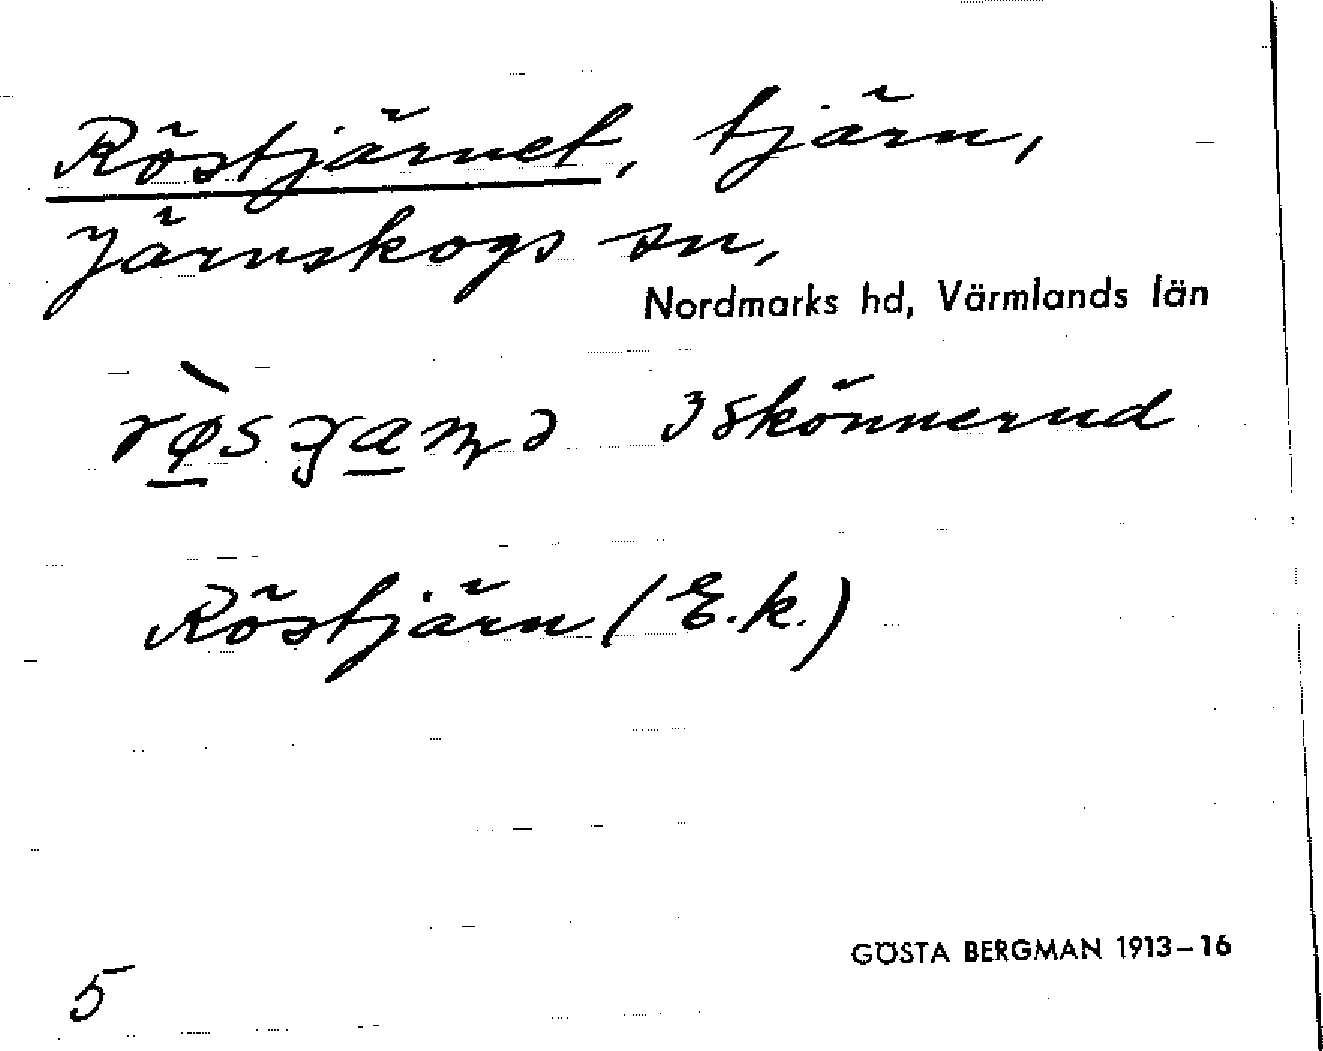 Röstjärnet, tjärn,
Järnskogs sn,
Nordmarks hd, Värmlands län
3 Skönnerud
Röstjärn (E.k.)
GÖSTA BERGMAN 1913–16
5